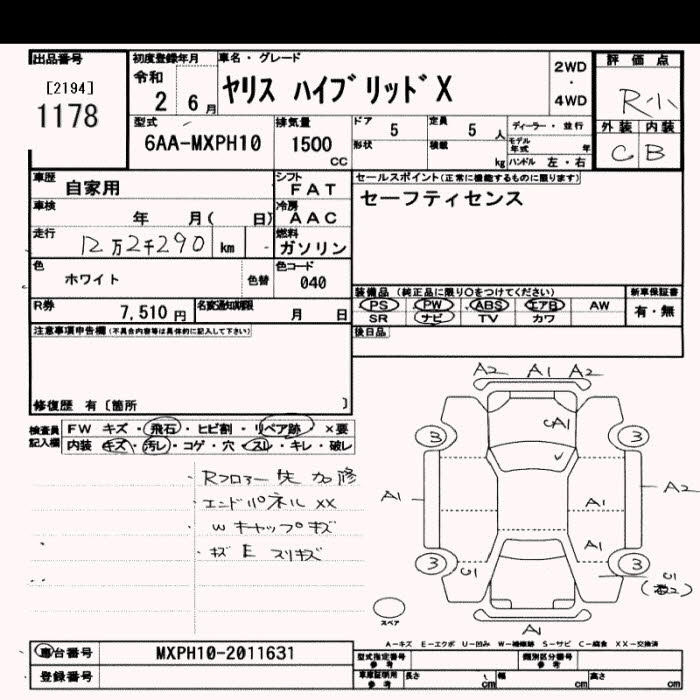 出品番号
[2194]
1178
初度登録年月
令和
2 6月
車名・グレード
ヤリス ハイブリッド X
2WD
・
4WD
評価点
R小
外装 内装
C B
型式
6AA-MXPH10
排気量
1500
CC
ドア
5
形状
定員
5 人
積載
kg
ディーラー・並行
モデル年式 年
ハンドル 左・右
車歴
自家用
シフト
FAT
車検
年 月( 日)
冷房
AAC
走行
12万2千290 km -
燃料
ガソリン
色
ホワイト
色替
色コード
040
R券
7,510円
名変通知期限
月 日
セールスポイント(正常に機能するものに限ります)
セーフティセンス
装備品 (純正品に限り○をつけてください)
新車保証書
PS PW ABS エアB AW
有・無
SR ナビ TV カワ
後日品
注意事項申告欄(不具合内容等は具体的に記入して下さい)
修復歴 有〔箇所 〕
検査員記入欄
FW キズ・飛石・ヒビ割・リペア跡 ×要
内装 キズ・汚レ・コゲ・穴・スレ・キレ・破レ
・Rフロアー 先 加修
・エンドパネル XX
・W キャップキズ
・キズ E スリキズ
A2 A1 A2
A1
3 3
A1 A1 A2
A1
3 3
U1
スペア
A1
A-キズ E-エクボ U-凹み W-補修跡 S-サビ C-腐食 XX-交換済
車台番号
MXPH10-2011631
登録番号
型式指定番号
参考
類別区分番号
参考
車庫証明用
参考
長さ cm
幅 cm
高さ cm